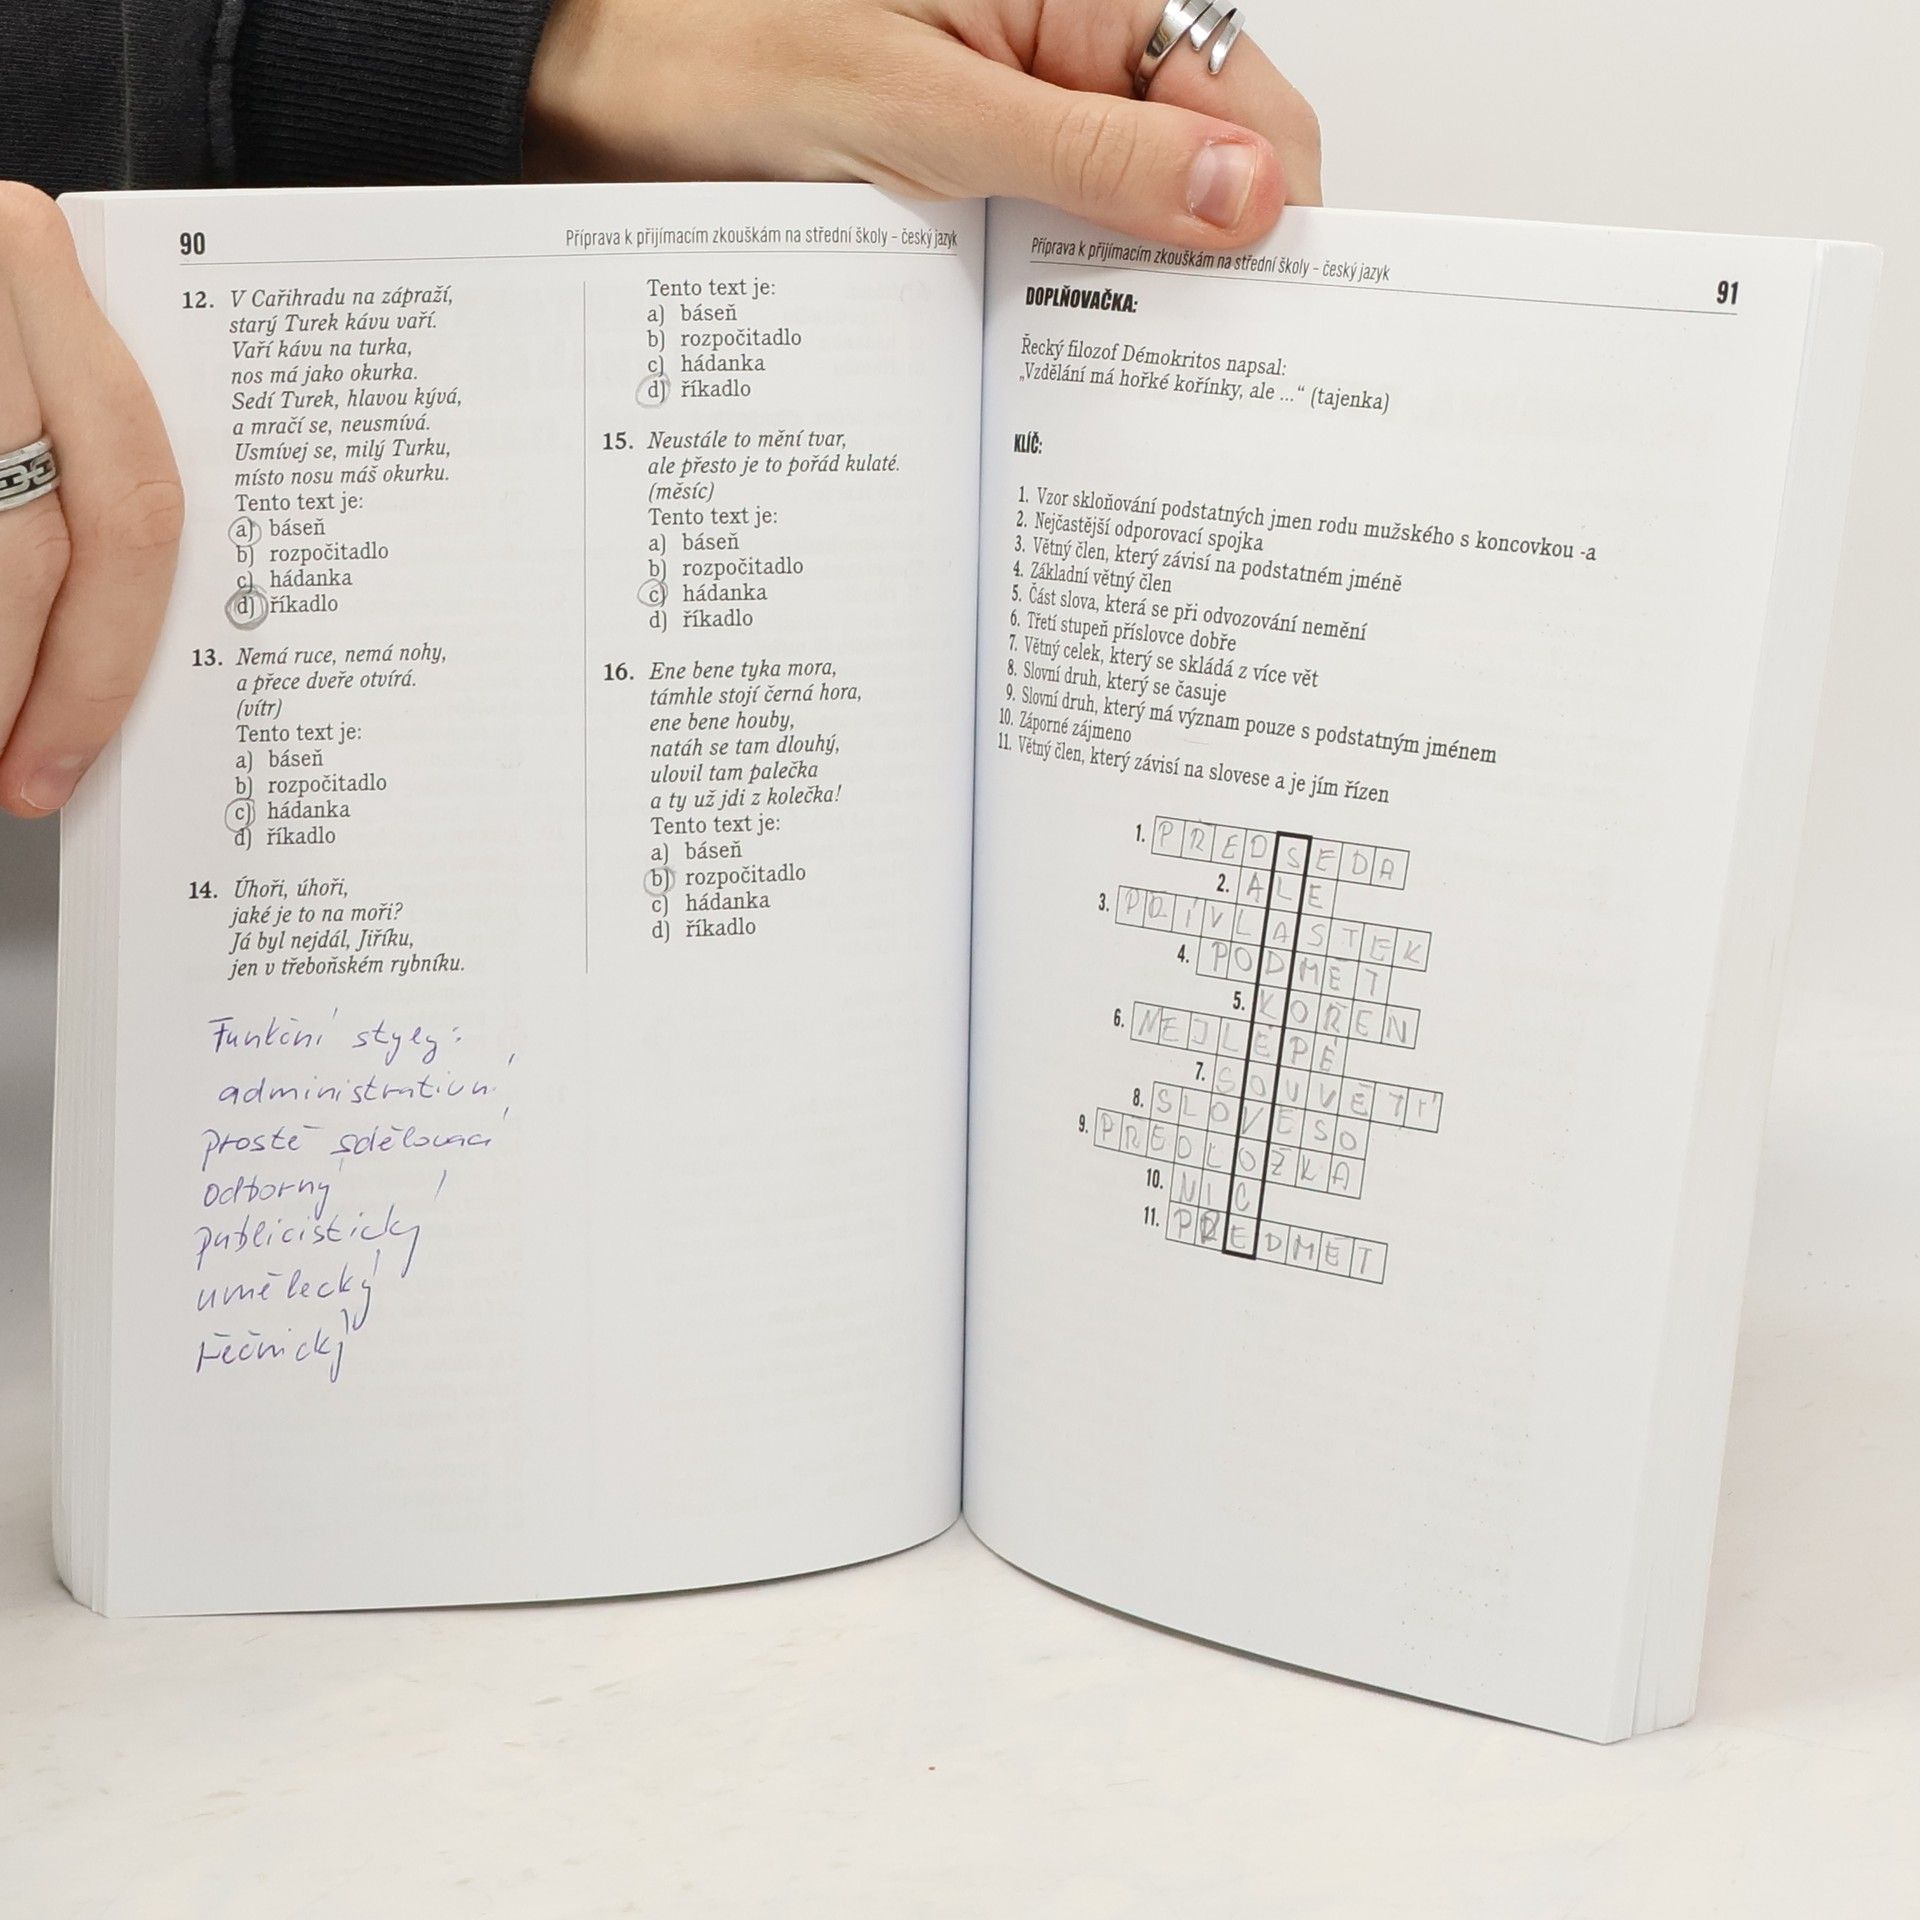 90
Příprava k přijímacím zkouškám na střední školy – český jazyk
12. V Cařihradu na zápraží,
starý Turek kávu vaří.
Vaří kávu na turka,
nos má jako okurka.
Sedí Turek, hlavou kývá,
a mračí se, neusmívá.
Usmívej se, milý Turku,
místo nosu máš okurku.
Tento text je:
a) báseň
b) rozpočitadlo
c) hádanka
d) říkadlo
13. Nemá ruce, nemá nohy,
a přece dveře otvírá.
(vítr)
Tento text je:
a) báseň
b) rozpočitadlo
c) hádanka
d) říkadlo
14. Úhoři, úhoři,
jaké je to na moři?
Já byl nejdál, Jiříku,
jen v třeboňském rybníku.
Funkční styly:
administrativní
prostě sdělovací
odborný
publicistický
umělecký
řečnický
Tento text je:
a) báseň
b) rozpočitadlo
c) hádanka
d) říkadlo
15. Neustále to mění tvar,
ale přesto je to pořád kulaté.
(měsíc)
Tento text je:
a) báseň
b) rozpočitadlo
c) hádanka
d) říkadlo
16. Ene bene tyka mora,
támhle stojí černá hora,
ene bene houby,
natáh se tam dlouhý,
ulovil tam palečka
a ty už jdi z kolečka!
Tento text je:
a) báseň
b) rozpočitadlo
c) hádanka
d) říkadlo
Příprava k přijímacím zkouškám na střední školy – český jazyk
91
DOPLŇOVAČKA:
Řecký filozof Démokritos napsal:
„Vzdělání má hořké kořínky, ale ...“ (tajenka)
KLÍČ:
1. Vzor skloňování podstatných jmen rodu mužského s koncovkou -a
2. Nejčastější odporovací spojka
3. Větný člen, který závisí na podstatném jméně
4. Základní větný člen
5. Část slova, která se při odvozování nemění
6. Třetí stupeň příslovce dobře
7. Větný celek, který se skládá z více vět
8. Slovní druh, který se časuje
9. Slovní druh, který má význam pouze s podstatným jménem
10. Záporné zájmeno
11. Větný člen, který závisí na slovese a je jím řízen
1. PŘEDSEDA
2. ALE
3. PŘÍVLASTEK
4. PODMĚT
5. KOŘEN
6. NEJLÉPE
7. SOUVĚTÍ
8. SLOVESO
9. PŘEDLOŽKA
10. NIC
11. PŘEDMĚT